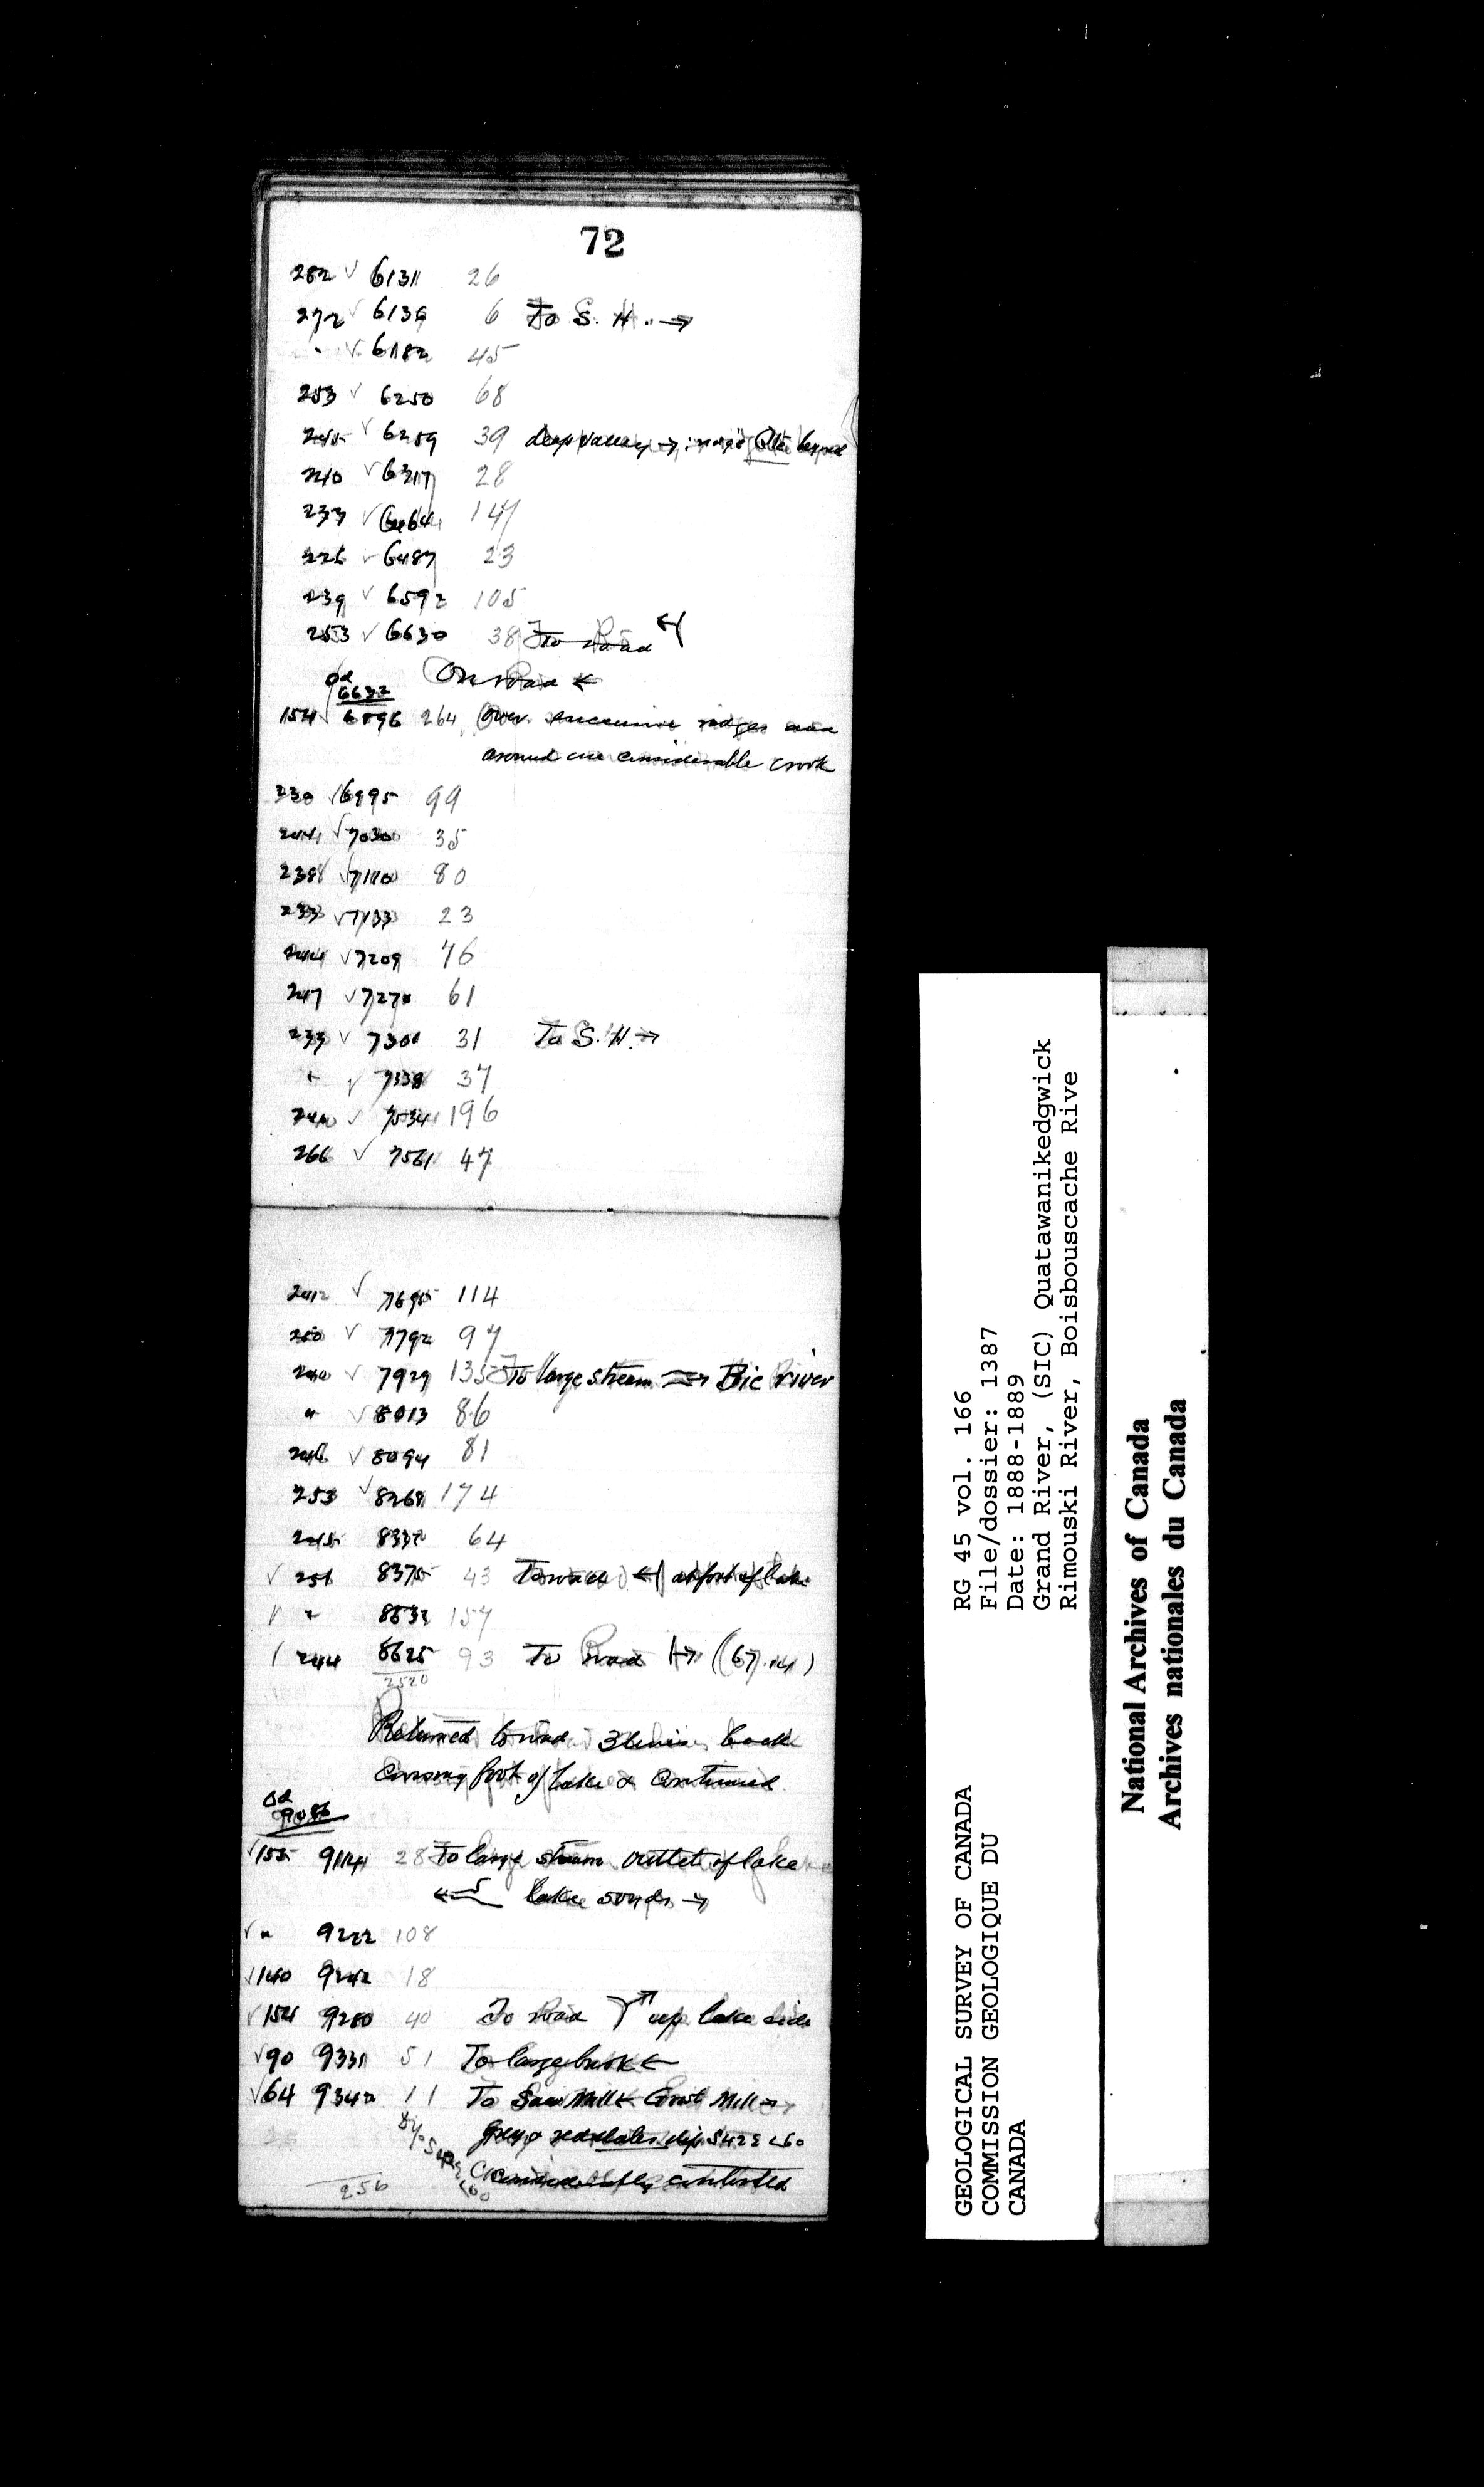 72
282 √ 6131 26
272 √ 6139 6 To S. H. →
" √ 6182 45
253 √ 6250 68
245 √ 6259 39 deep valley → beyond
240 √ 6317 28
233 √ 6464 147
√ 6487 23
239 √ 6592 105
253 √ 6630 38 To Road
Od
6632
On Road ←
154 √ 6896 264 Over successive ridges and
around one considerable crook
230 √ 6995 99
244 √ 7030 35
238 √ 7110 80
233 √ 7133 23
244 √ 7209 76
247 √ 7270 61
233 √ 7301 31 To S. H. →
" √ 7338 37
240 √ 7534 196
266 √ 7581 47
242 √ 7695 114
250 √ 7792 97
240 √ 7929 135 To large stream → Bic river
" √ 8013 86
246 √ 8094 81
253 √ 8268 174
245 8332 64
√ 251 8375 43 To road at foot of lake
√ " 8532 157
√ 244 8625 93 To Road (67.14)
2520
Returned to road 3 back
Crossing foot of lake & continued
Od
9086
√ 155 9114 28 To large stream outlet of lake
← lake 50 yds →
√ " 9222 108
√ 140 9242 18
√ 154 9280 40 To road up lake side
√ 90 9331 51 To large brook ←
√ 64 9342 11 To Saw Mill ← Grist Mill →
Grey & red slates dip S42E <60
Dip S42E <60
considerably contorted
256
GEOLOGICAL SURVEY OF CANADA
COMMISSION GEOLOGIQUE DU
CANADA
RG 45 vol. 166
File/dossier: 1387
Date: 1888-1889
Grand River, (SIC) Quatawanikedgwick
Rimouski River, Boisbouscache Rive
National Archives of Canada
Archives nationales du Canada